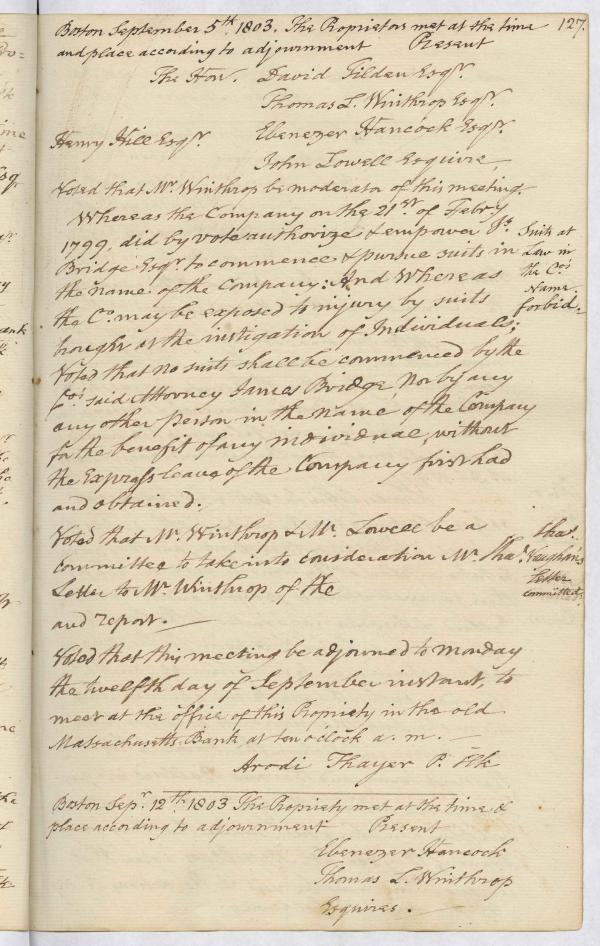 127.
Boston September 5th. 1803. The Proprietors met at the time
and place according to adjournment Present
The Hon. David Tilden Esqr.
Thomas L. Winthrop Esqr.
Henry Hill Esqr. Ebenezer Hancock Esqr.
John Lowell Esquire,
Voted that Mr. Winthrop be moderator of this meeting.
Whereas the Company on the 21st of Febry
1799, did by vote authorize & empower Js.
Bridge Esqr. to commence & pursue suits in
the name of the Company: And Whereas
the Co. may be exposed to injury by suits
brought at the instigation of Individuals;
Suits at
Law in
the Co's
Name
forbid.
Voted that no suits shall be commenced by the
Co's said Attorney James Bridge, Nor by any
any other person in the name of the Company
for the benefit of any individual, without
the Express leave of the Company first had
and obtained.
Voted that Mr. Winthrop & Mr. Lowell be a
committee to take into consideration Mr. Chas.
Letter to Mr. Winthrop of the
and report.
Chas.
Vaughan's
Letter
committed
Voted that this meeting be adjourned to Monday
the twelfth day of September instant, to
meet at the office of this Propriety in the old
Massachusetts Bank at ten o'clock a. m.
Arodi Thayer P. Clk
Boston Sepr. 12th 1803 The Propriety met at the time &
place according to adjournment Present
Ebenezer Hancock
Thomas L. Winthrop
Esquires.